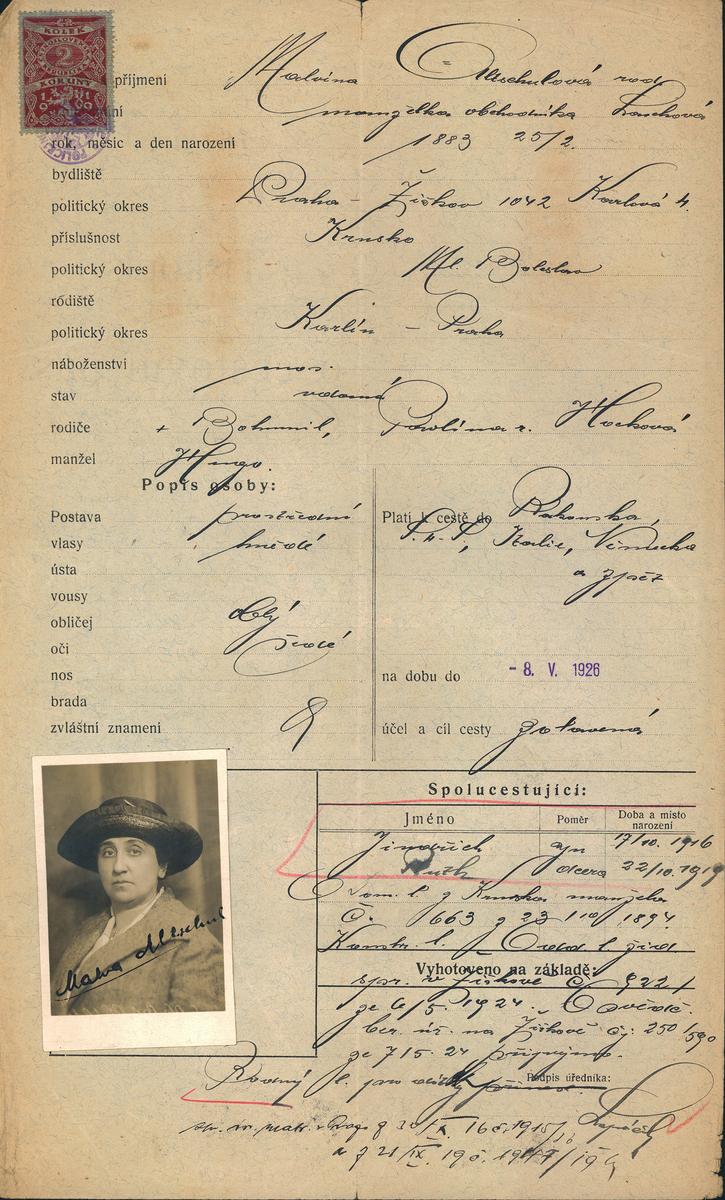 KOLEK
2
KORUNY
příjmení Malvina Altschulová roz.
manželka obchodníka
rok, měsíc a den narození 1883 25/2
bydliště
politický okres Praha - Žižkov 1042 Karlova 4.
příslušnost Krnsko
politický okres Ml. Boleslav
rodiště
politický okres Karlín - Praha
náboženství mos.
stav vdaná
rodiče + Bohumil, Pavlína r. Hocková
manžel Hugo.
Popis osoby:
Postava prostřední
vlasy hnědé
ústa
vousy
obličej oblý
oči šedé
nos
brada
zvláštní znamení
Platí k cestě do Rakouska,
Italie, Německa
a zpět
na dobu do - 8. V. 1926
účel a cíl cesty zotavená
Spolucestující:
Jméno Poměr Doba a místo narození
Jindřich syn 17/10. 1916
Ruth dcera 22/10. 1919
Dom. l. z Krnska manžela
Č. 663 z 23/10 1894.
Vyhotoveno na základě:
ze 6/5. 1924.
ber. úř. na Žižkově čj. 250/590
ze 7/5. 24
Rodný l. pro
Podpis úředníka:
Malva Altschul